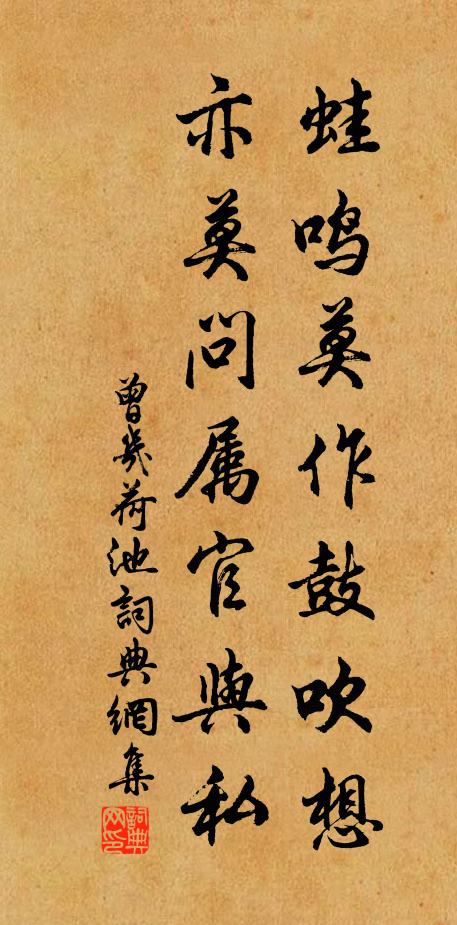 蛙鸣莫作鼓吹想
亦莫问属官與私
曾几荷池詞典網集
詞典网印